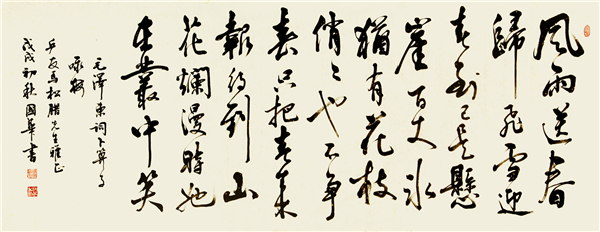 風雨送春
歸飛雪迎
春到已是懸
崖百丈冰
猶有花枝
俏々也不争
春只把春来
報待到山
花爛漫時她
在叢中笑
毛澤東詞卜算子
咏梅
乒友馬松腊先生雅正
戊戌初秋國華書